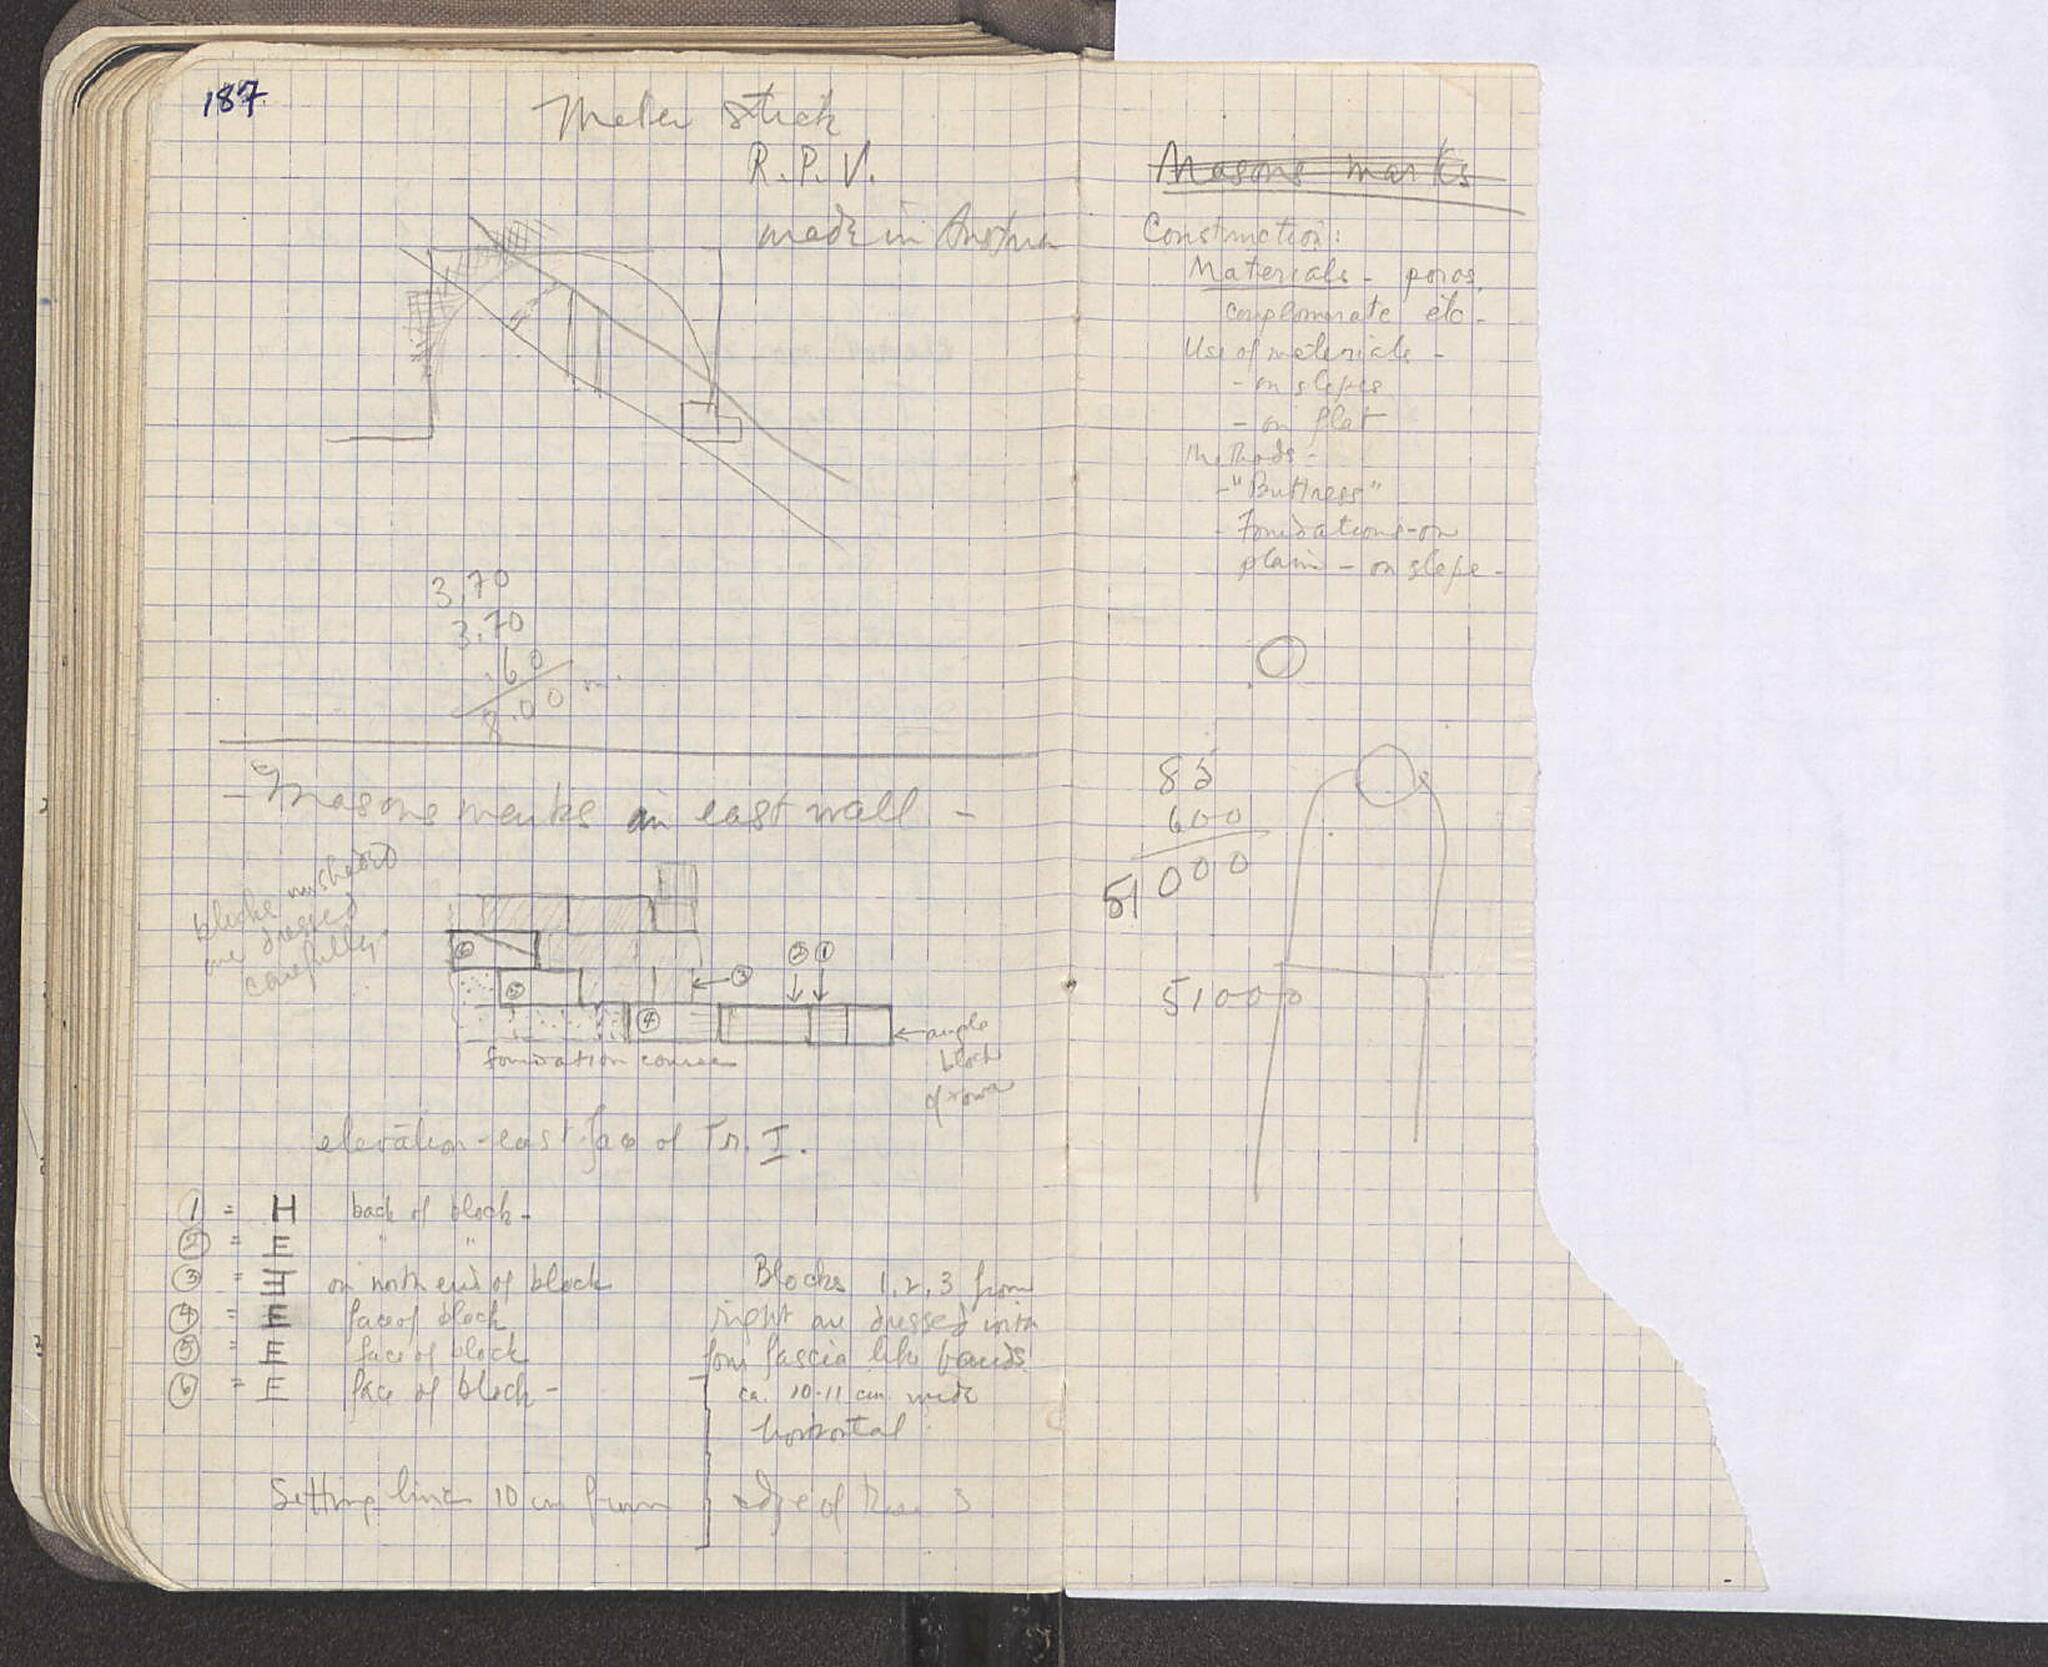 187
Meter stick
R.P.V.
made in Austria
3.70
3.70
.60
8.00 m.
- Masons marks in east wall -
blocks not shaded
are dressed
carefully
⑥
⑤
④
③
② ①
angle
block
of tower
foundation course
elevation - east face of Tr. I.
① = H back of block -
② = E " "
③ = Ǝ on north end of block
④ = E face of block
⑤ = E face of block
⑥ = E face of block -
Blocks 1, 2, 3 from
right are dressed with
four fascia like bands
ca. 10-11 cm. wide
horizontal
Setting line 10 cm from edge of these 3
Masons marks
Construction:
Materials - poros,
conglomerate etc -
Use of materials -
- on slopes
- on flat
Methods -
- "Buttress"
- Foundations - on
plain - on slope -
85
600
51 000
51000